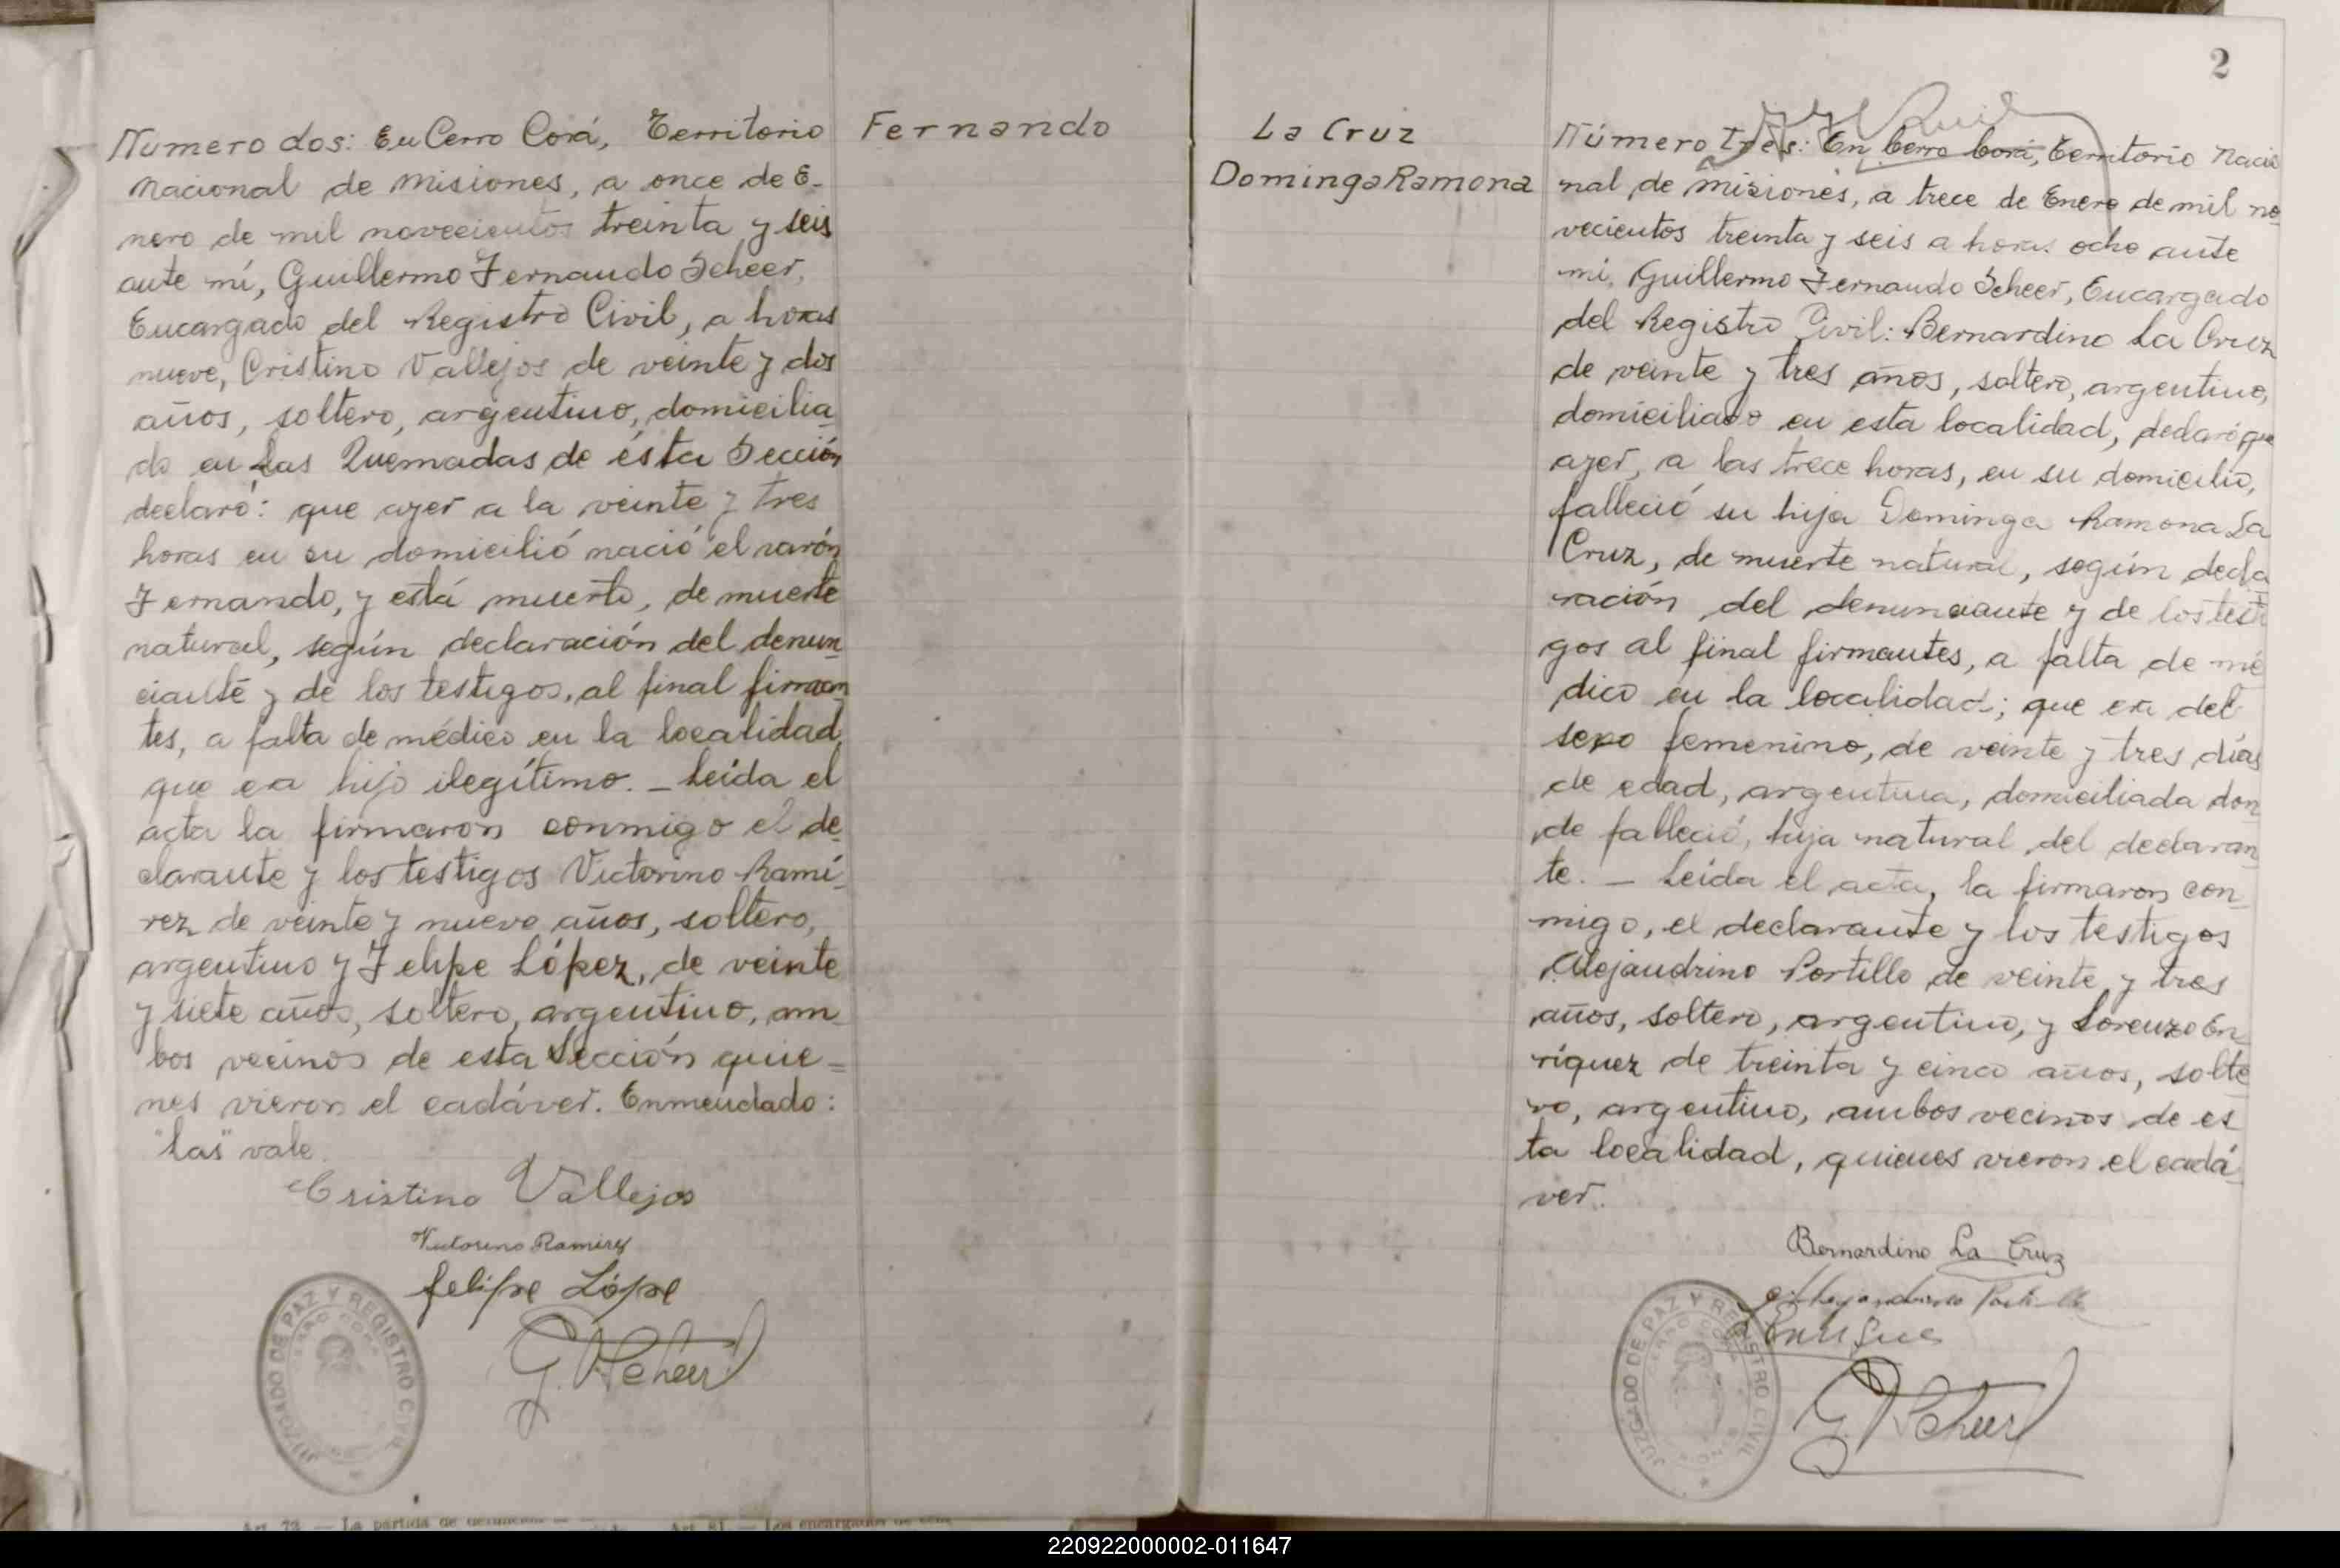 Número dos: En Cerro Corá, Territorio
Nacional de Misiones, a once de E-
nero de mil novecientos treinta y seis
ante mí, Guillermo Fernando Scheer,
Encargado del Registro Civil, a horas
nueve, Cristino Vallejos de veinte y dos
años, soltero, argentino, domicilia-
do en Las Quemadas de ésta Sección
declaró: que ayer a la veinte y tres
horas en su domicilió nació el varón
Fernando, y está muerto, de muerte
natural, según declaración del denun-
ciante y de los testigos, al final firman
tes, a falta de médico en la localidad,
que era hijo ilegítimo. - Leída el
acta la firmaron conmigo el de-
clarante y los testigos Victorino Ramí-
rez de veinte y nueve años, soltero,
argentino y Felipe López, de veinte
y siete años, soltero, argentino, am-
bos vecinos de esta Sección quie=
nes vieron el cadáver. Enmendado:
"las" vale.
Cristino Vallejos
Victorino Ramirez
felipe Lópe
G. F. Scheer
JUZGADO DE PAZ Y REGISTRO CIVIL
CERRO CORÁ
Fernando
La Cruz
Dominga Ramona
2
Número tres: En Cerro Corá, Territorio Nacio
nal de Misiones, a trece de Enero de mil no-
vecientos treinta y seis a horas ocho ante
mí, Guillermo Fernando Scheer, Encargado
del Registro Civil: Bernardino La Cruz
de veinte y tres años, soltero, argentino,
domiciliado en esta localidad, declaró que
ayer, a las trece horas, en su domicilio,
falleció su hija Dominga Ramona La
Cruz, de muerte natural, según decla
ración del denunciante y de los testi
gos al final firmantes, a falta de mé
dico en la localidad; que era del
sexo femenino, de veinte y tres días
de edad, argentina, domiciliada don
de falleció, hija natural del declaran
te. - Leída el acta, la firmaron con-
migo, el declarante y los testigos
Alejandrino Portillo de veinte y tres
años, soltero, argentino, y Lorenzo En-
ríquez de treinta y cinco años, solte
ro, argentino, ambos vecinos de es-
ta localidad, quienes vieron el cadá-
ver.
Bernardino La Cruz
Portillo
G. F. Scheer
JUZGADO DE PAZ Y REGISTRO CIVIL
Art. 73. — La partida de defunción
Art. 81. — Los encargados de
220922000002-011647